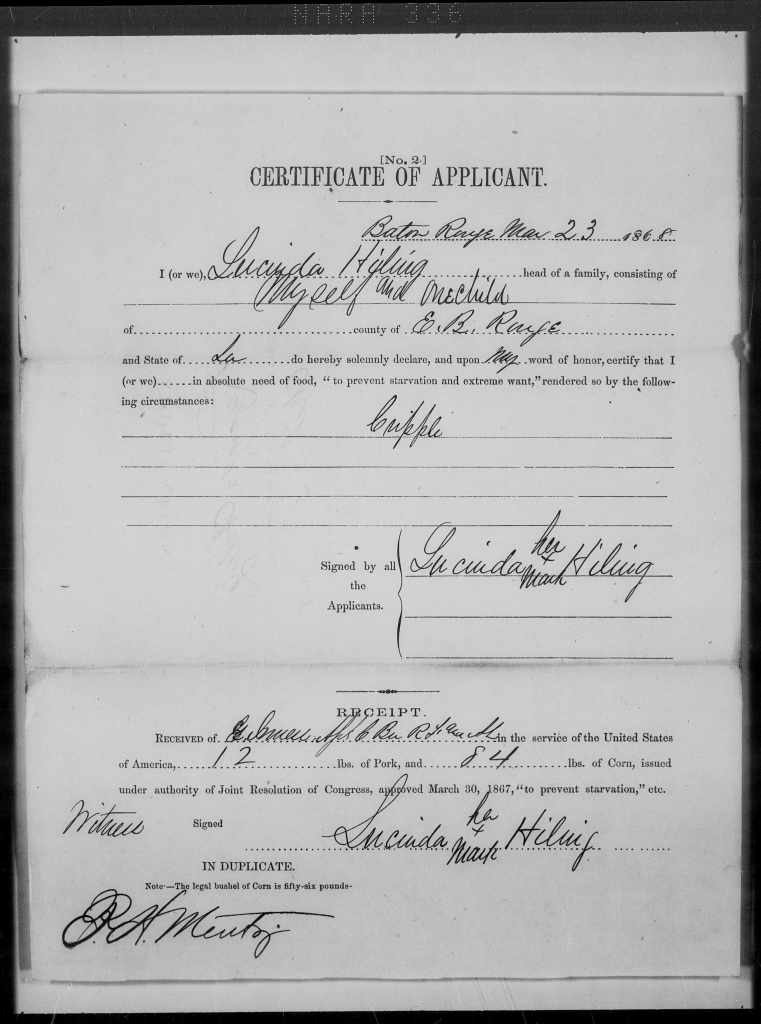 NARA 336
[No. 2.]
CERTIFICATE OF APPLICANT.
Baton Rouge Mar 23 1868
I (or we), Lucinda Hiling head of a family, consisting of
Myself and one Child
of county of E. B. Rouge
and State of La do hereby solemnly declare, and upon my word of honor, certify that I
(or we) in absolute need of food, "to prevent starvation and extreme want," rendered so by the follow-
ing circumstances:
Cripple
Signed by all
the
Applicants.
Lucinda her + mark Hiling
RECEIPT.
RECEIVED of in the service of the United States
of America, 12 lbs. of Pork, and 84 lbs. of Corn, issued
under authority of Joint Resolution of Congress, approved March 30, 1867, "to prevent starvation," etc.
Witness Signed Lucinda her + mark Hiling
IN DUPLICATE.
Note—The legal bushel of Corn is fifty-six pounds-